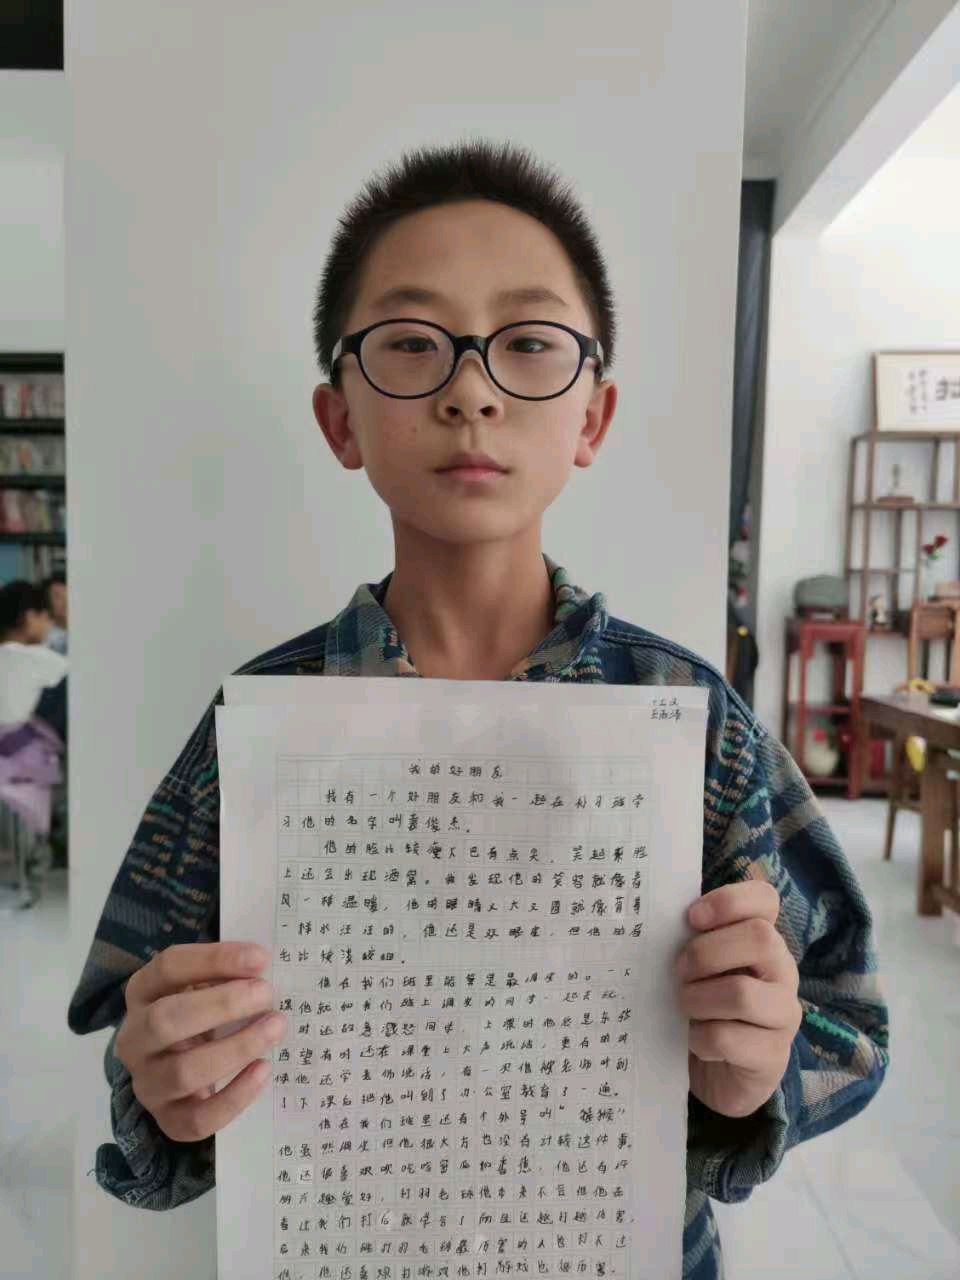 王雨泽
我的好朋友
我有一个好朋友和我一起在补习班学
习他的名字叫袁俊杰。
他的脸比较瘦下巴有点尖，笑起来脸
上还会出现酒窝。我发现他的笑容就像春
风一样温暖，他的眼睛又大又圆就像葡萄
一样水汪汪的，他还是双眼皮，但他的眉
毛比较淡较粗。
他在我们班里能算是最调皮的。一下
课他就和我们班上调皮的同学一起去玩，
时还故意激怒同学，上课时他总是东张
西望有时还在课堂上大声说话，更有的时
候他还学老师说话，有一次他被老师听到
了下课后把他叫到了办公室教育了一通。
他在我们班里还有个外号叫“猿猴”
他虽然调皮但他很大方也没有计较这件事。
他还很喜欢吃哈密瓜和香蕉，他还有许
多兴趣爱好，打羽毛球他本来不会但他去
看过我们打后就学会了而且还越打越厉害，
后来我们班打羽毛球最厉害的人也打不过
他，他还喜欢打游戏他打游戏也很厉害，